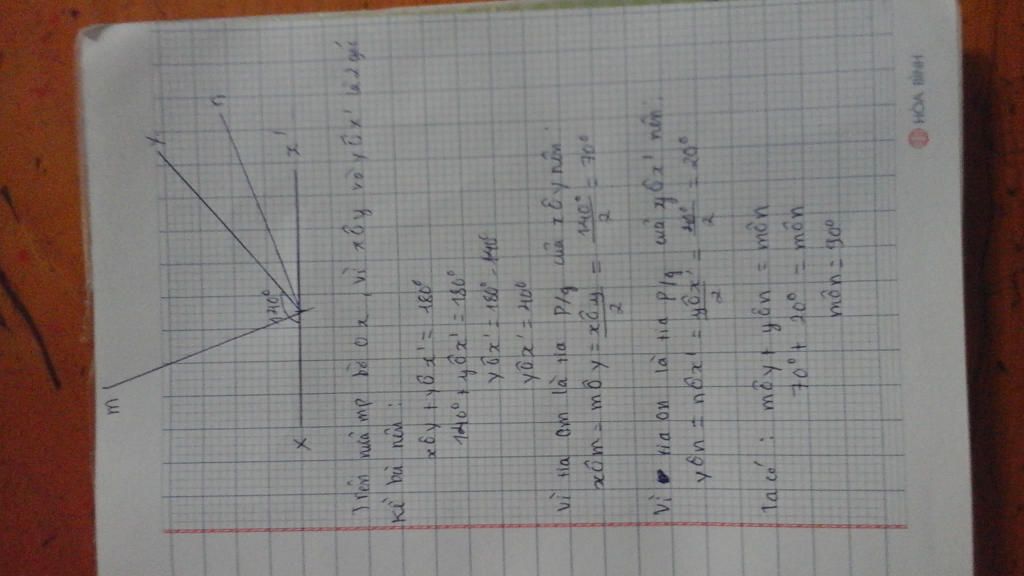 m
y
n
140°
x
x'
Trên nửa mp bờ Ox, vì xÔy và yÔx' là 2 góc
kề bù nên:
xÔy + yÔx' = 180°
140° + yÔx' = 180°
yÔx' = 180° - 140°
yÔx' = 40°
Vì tia Om là tia p/g của xÔy nên:
xÔm = mÔy = xÔy/2 = 140°/2 = 70°
Vì tia On là tia p/g của yÔx' nên:
yÔn = nÔx' = yÔx'/2 = 40°/2 = 20°
Ta có: mÔy + yÔn = mÔn
70° + 20° = mÔn
mÔn = 90°
HÒA BÌNH